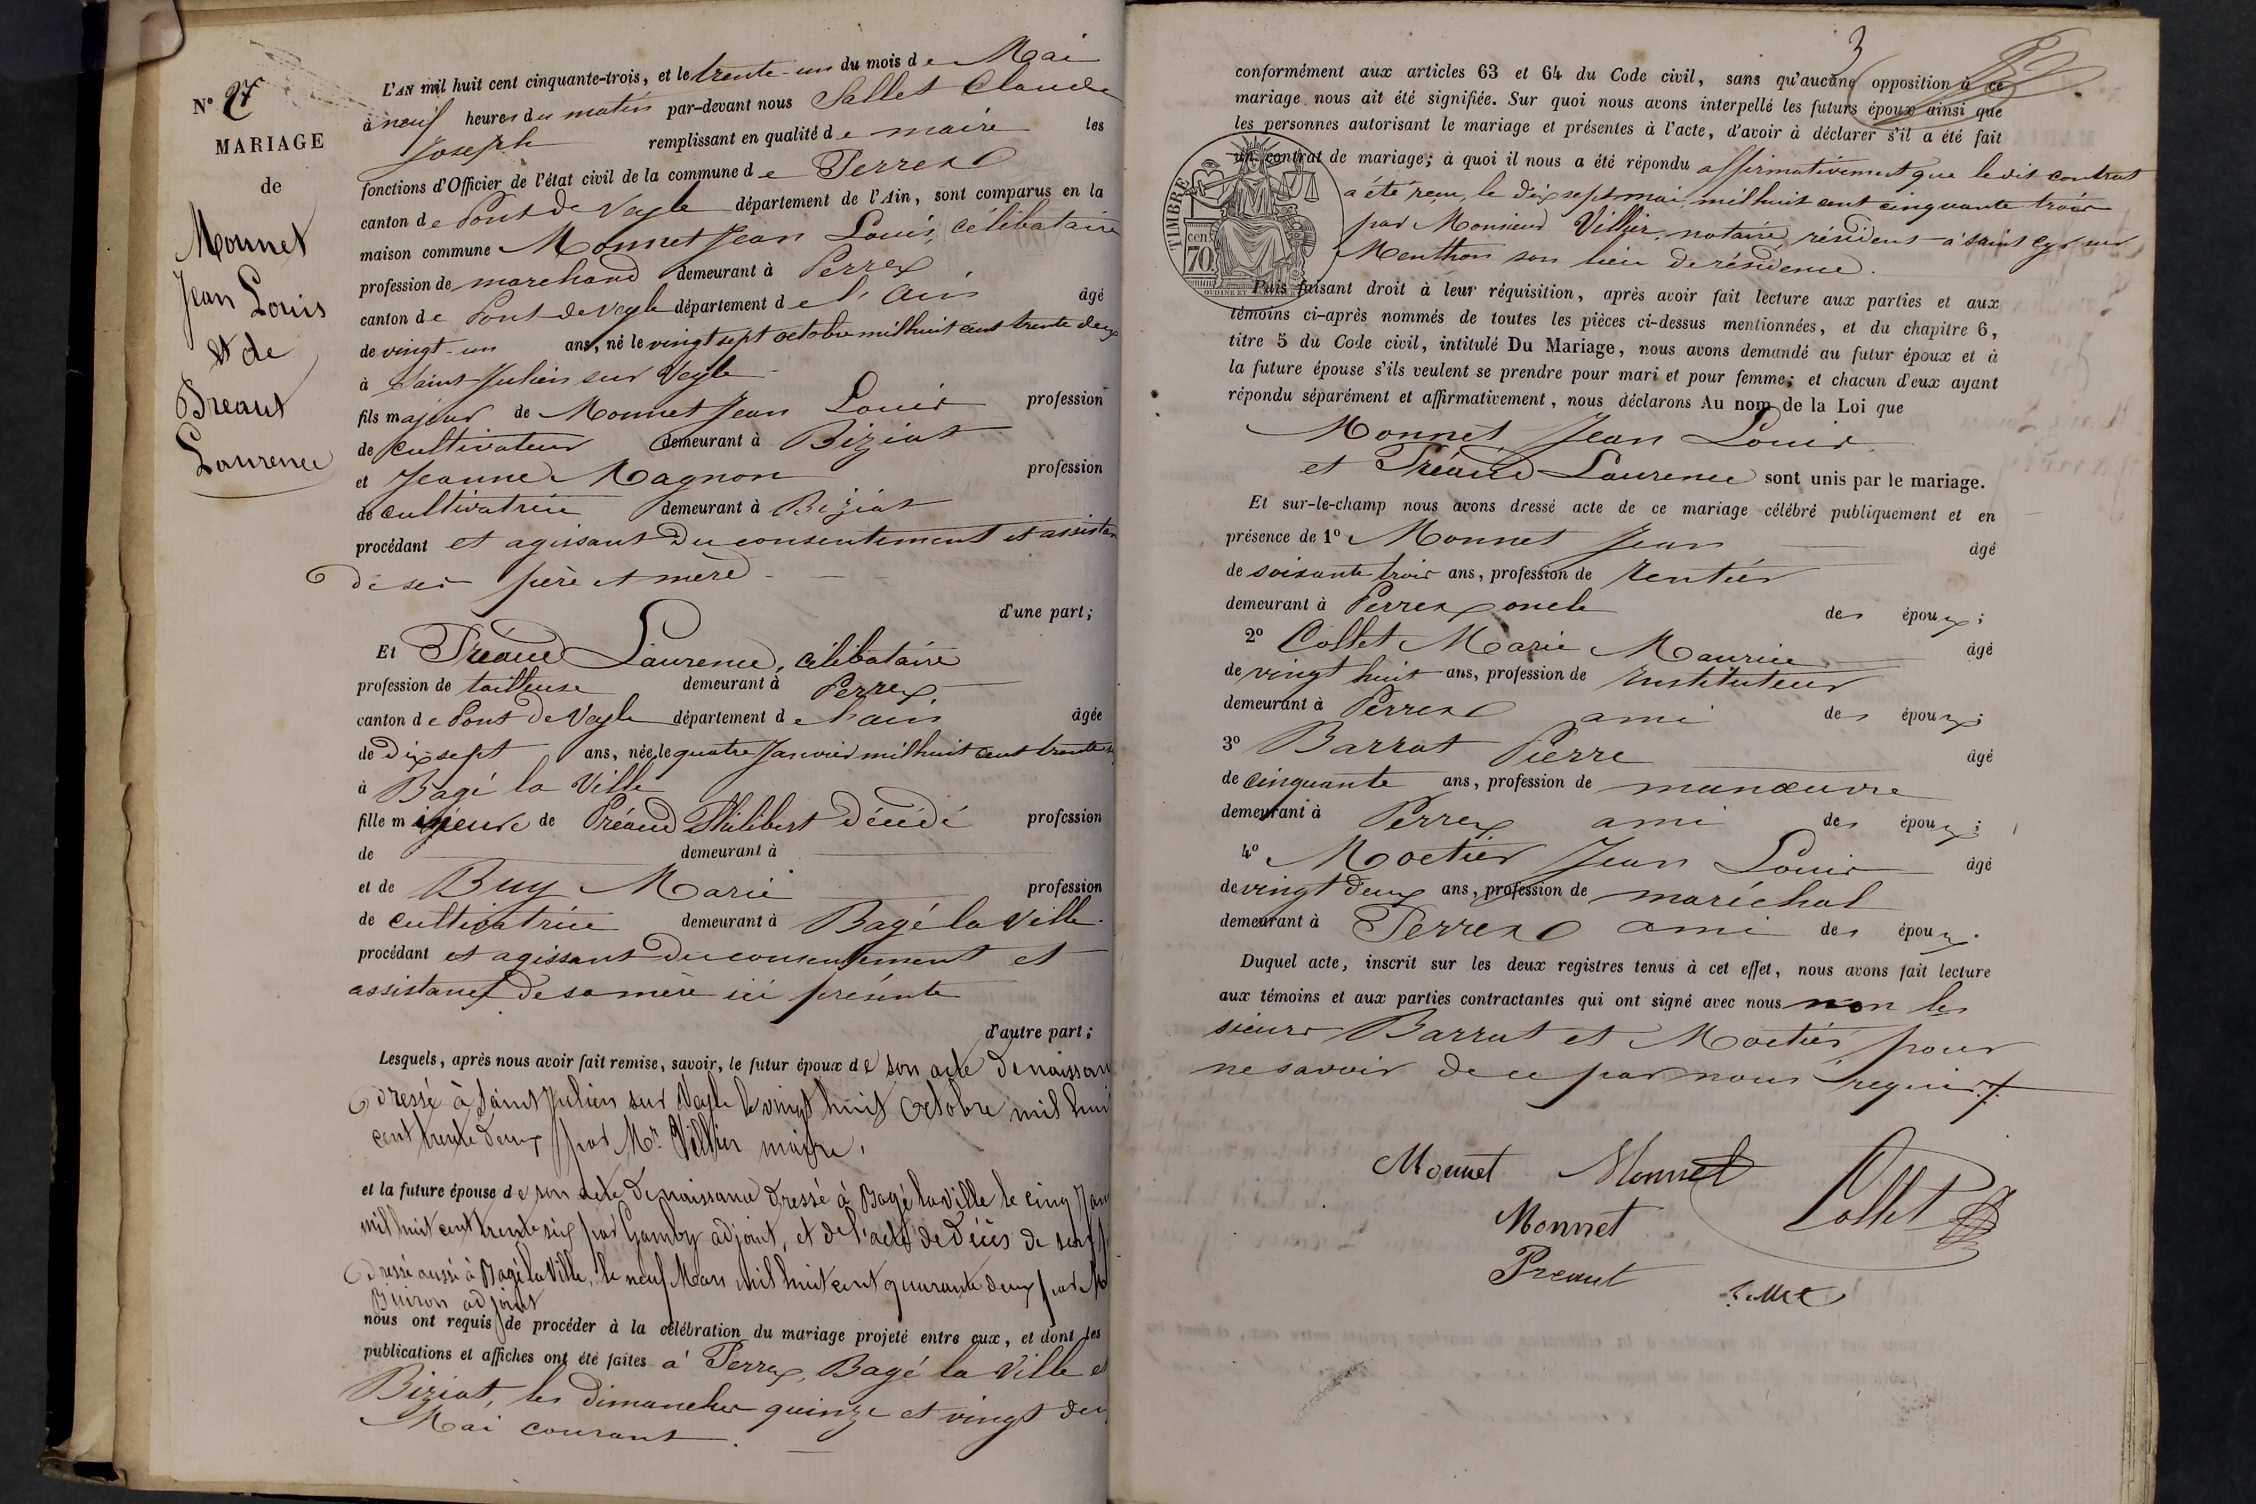 N° 27
MARIAGE
de
Monnet
Jean Louis
et de
Preaut
Laurence
L'AN mil huit cent cinquante-trois, et le trente-un du mois de Mai
à neuf heures du matin par-devant nous Sallet Claude
Joseph remplissant en qualité de maire les
fonctions d'Officier de l'état civil de la commune de Perrex
canton de Pont de Veyle département de l'Ain, sont comparus en la
maison commune Monnet Jean Louis, célibataire
profession de marchand demeurant à Perrex
canton de Pont de Veyle département de l'Ain âgé
de vingt-un ans, né le vingt sept octobre mil huit cent trente deux
à Saint Julien sur Veyle
fils majeur de Monnet Jean Louis profession
de cultivateur demeurant à Biziat
et Jeanne Magnon profession
de cultivatrice demeurant à Biziat
procédant et agissant du consentement et assistan
de ses père et mère
d'une part;
Et Préaud Laurence, célibataire
profession de tailleuse demeurant à Perrex
canton de Pont de Veyle département de l'ain âgée
de dix sept ans, née le quatre Janvier mil huit cent trente
à Bagé la Ville
fille mineure de Préaud Philibert décédé profession
de demeurant à
et de Buy Marie profession
de cultivatrice demeurant à Bagé la Ville
procédant et agissant du consentement et
assistance de sa mère ici présente
d'autre part;
Lesquels, après nous avoir fait remise, savoir, le futur époux de son acte de naissan
dressé à Saint Julien sur Veyle le vingt huit Octobre mil hui
cent trente deux par Mr. Villier maire,
et la future épouse de son acte de naissance dressé à Bagé la Ville le cinq Jan
mil huit cent trente six par Gamby adjoint, et de l'acte de décès de son p
dressé aussi à Bagé la Ville, le neuf Mars mil huit cent quarante deux par M
Buiron adjoint
nous ont requis de procéder à la célébration du mariage projeté entre eux, et dont les
publications et affiches ont été faites à Perrex, Bagé la Ville et
Biziat, les dimanches quinze et vingt deux
Mai courant.
3
conformément aux articles 63 et 64 du Code civil, sans qu'aucune opposition à ce
mariage nous ait été signifiée. Sur quoi nous avons interpellé les futurs époux ainsi que
les personnes autorisant le mariage et présentes à l'acte, d'avoir à déclarer s'il a été fait
un contrat de mariage; à quoi il nous a été répondu affirmativement que ledit contrat
a été reçu, le dix sept mai, mil huit cent cinquante trois
par Monsieur Villier, notaire, résident à Saint Cyr sur
Menthon son lieu de résidence.
TIMBRE
cen
70
Puis faisant droit à leur réquisition, après avoir fait lecture aux parties et aux
témoins ci-après nommés de toutes les pièces ci-dessus mentionnées, et du chapitre 6,
titre 5 du Code civil, intitulé Du Mariage, nous avons demandé au futur époux et à
la future épouse s'ils veulent se prendre pour mari et pour femme; et chacun d'eux ayant
répondu séparément et affirmativement, nous déclarons Au nom de la Loi que
Monnet Jean Louis
et Préaud Laurence sont unis par le mariage.
Et sur-le-champ nous avons dressé acte de ce mariage célébré publiquement et en
présence de 1° Monnet Jean âgé
de soixante trois ans, profession de rentier
demeurant à Perrex oncle des époux;
2° Collet Marie Maurice âgé
de vingt huit ans, profession de Instituteur
demeurant à Perrex ami des époux;
3° Barrat Pierre âgé
de cinquante ans, profession de manœuvre
demeurant à Perrex ami des époux;
4° Moctier Jean Louis âgé
de vingt deux ans, profession de maréchal
demeurant à Perrex ami des époux.
Duquel acte, inscrit sur les deux registres tenus à cet effet, nous avons fait lecture
aux témoins et aux parties contractantes qui ont signé avec nous non les
sieurs Barrat et Moctier pour
ne savoir de ce par nous requis./.
Monnet Monnet
Collet
Monnet
Preaut